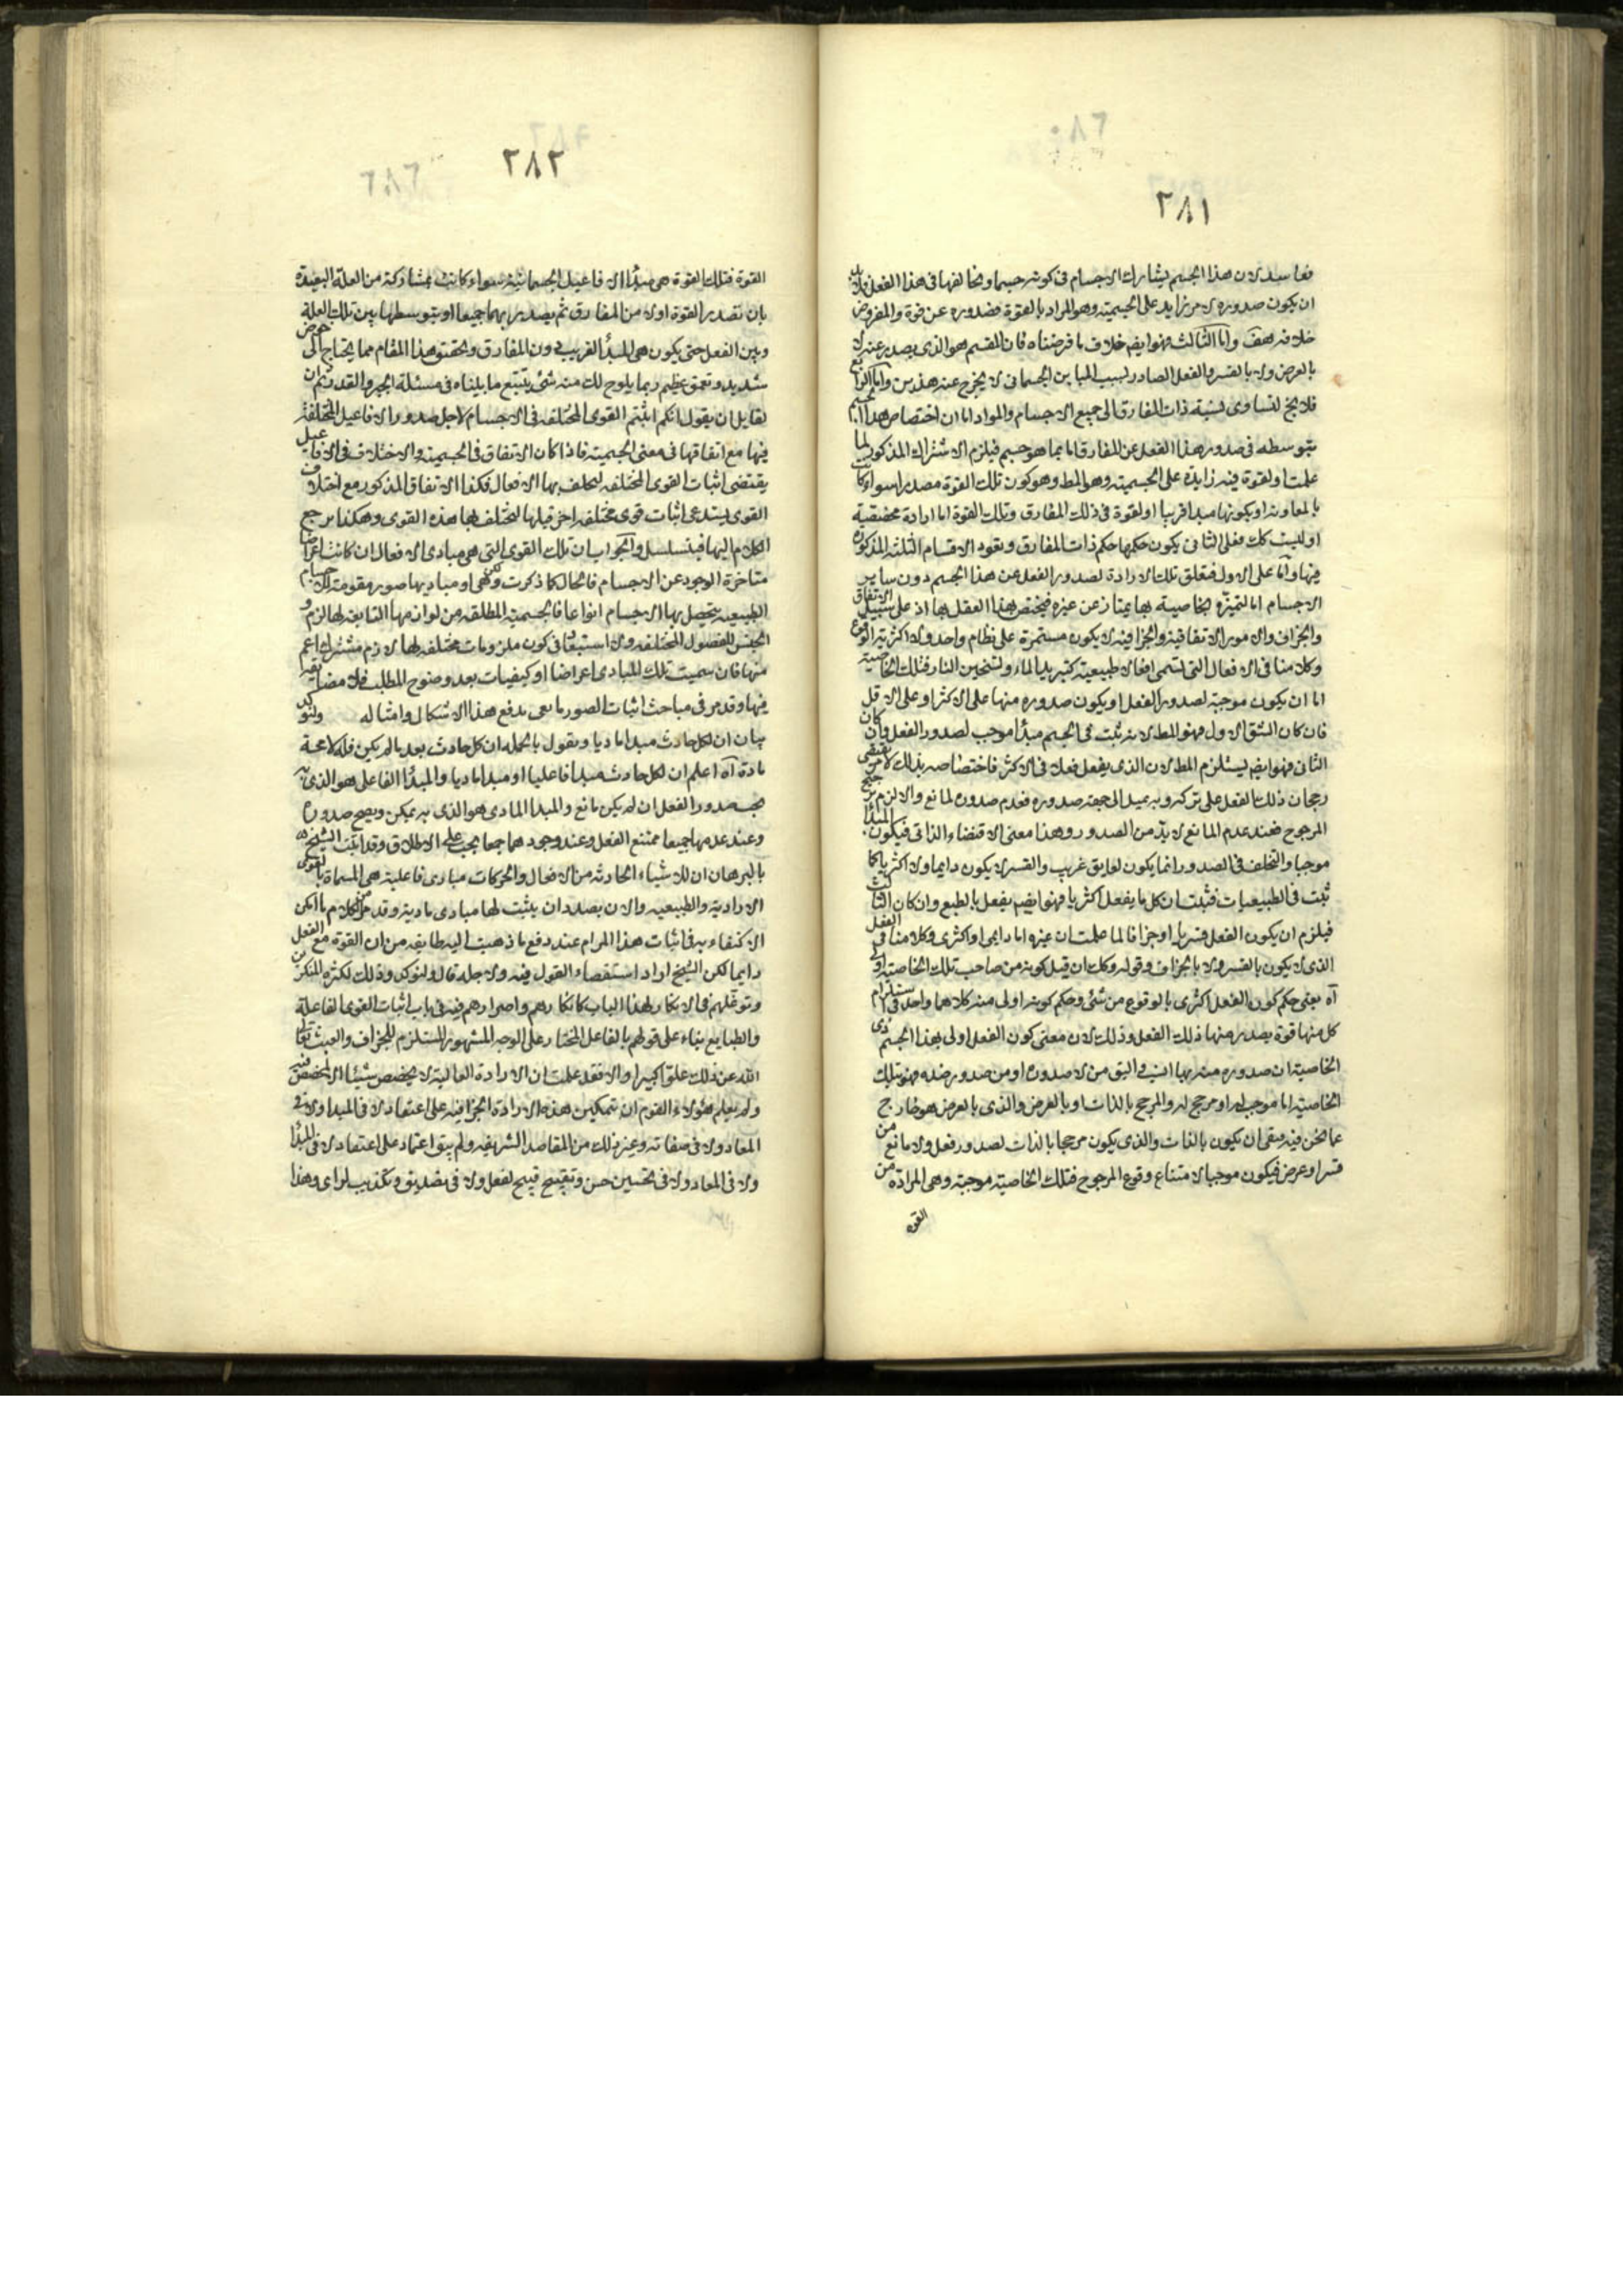 ٢٨١
ففاسد لان هذا الجسم يشارك الاجسام فى كونه جسما ويخالفها فى هذا الفعل فلابد
ان يكون صدوره لامر زايد على الجسمية وهو المراد بالقوة فصدوره عن قوة والمفروض
خلافه هف واما الثالث فهو ايضم خلاف ما فرضناه فان المقسم هو الذى يصدر عنه لا
بالعرض ولا بالقسر والفعل الصادر بسبب المباين الجسمانى لا يخرج عنه هذين واما الرابع
فلايخ لتساوى نسبة ذات المفارق الى جميع الاجسام والمواد اما ان اختصاص هذا الجسم
بتوسطه فى صدور هذا الفعل عن المفارق اما بما هو جسم فيلزم الاشتراك المذكور لما
علمت او لقوة فيه زايدة على الجسمية وهو المط وهو كون تلك القوة مصدرا سواء كانت
بالمعاونة او بكونها مبدا قريبا او لقوة فى ذلك المفارق وتلك القوة اما ارادة محضة
او ليست كك فعلى الثانى يكون حكمها حكم ذات المفارق وتعود الاقسام الثلثة المذكورة
فيها واما على الاول فتعلق تلك الارادة لصدور الفعل عن هذا الجسم دون ساير
الاجسام اما لتميزه بخاصية بها يمتاز عن غيره فيختص بهذا الفعل بها اذ على سبيل الاتفاق
والجزاف والامور الاتفاقية والجزافية لا يكون مستمرة على نظام واحد ولا اكثرية الوقوع
وكلامنا فى الافعال التى تسمى افعالا طبيعية كتبريد الماء وتسخين النار فتلك الخاصية
اما ان يكون موجبة لصدور الفعل او يكون صدوره منها على الاكثر او على الاقل
فان كان الشق الاول فهو المط لانه ثبت فى الجسم مبدأ موجب لصدور الفعل وان كان
الثانى فهو ايضم يستلزم المط لان الذى يفعل فعلا فى الاكثر فاختصاصه بذلك لامر يقتضى
رجحان ذلك الفعل على تركه وبه يميل الى جهة صدوره فعدم صدوره لمانع والا لزم ترجيح
المرجوح فعند عدم المانع لا بد من الصدور وهذا معنى الاقتضاء الذاتى فيكون المبدأ
موجبا والتخلف فى الصدور انما يكون لعايق غريب والقسر لا يكون دايما ولا اكثريا كما
ثبت فى الطبيعيات فثبت ان كل ما يفعل اكثريا فهو ايضم يفعل بالطبع وان كان الثالث
فيلزم ان يكون الفعل قسريا او جزافا لما علمت ان غيره اما دايمى او اكثرى وكلامنا فى الفعل
الذى لا يكون بالقسر ولا بالجزاف وقوله وكك ان قيل كونه من صاحب تلك الخاصية اولى
آه يعنى حكم كون الفعل اكثرى بالوقوع من شئ وحكم كونه اولى منه كلاهما واحد فى استلزام
كل منها قوة يصدر منها ذلك الفعل وذلك لان معنى كون الفعل اولى بهذا الجسم ذى
الخاصية ان صدوره منه بها انسب واليق من لا صدوره او من صدور ضده فهو بتلك
الخاصية اما موجب له او مرجح له والمرجح بالذات او بالعرض والذى بالعرض هو خارج
عما نحن فيه فبقى ان يكون بالذات والذى يكون مرجحا بالذات لصدور فعل ولا مانع من
قسر او عرض فيكون موجبا لامتناع وقوع المرجوح فتلك الخاصية موجبة وهى المرادة من
القوة
٢٨٢
القوة فتلك القوة هى مبدأ الافاعيل الجسمانية سواء كانت بمشاركة من العلة البعيدة
بان تصدر القوة اولا من المفارق ثم يصدر بهما جميعا او بتوسطها بين تلك العلة
وبين الفعل حتى يكون هى المبدأ القريب دون المفارق وتحقيق هذا المقام مما يحتاج الى خوض
شديد وتعمق عظيم ربما يلوح لك منه شئ بتتبع ما بيناه فى مسئلة الجبر والقدر ثم ان
لقايل ان يقول انكم اثبتم القوى المختلفة فى الاجسام لاجل صدور الافاعيل المختلفة
فيها مع اتفاقها فى معنى الجسمية فاذا كان الاتفاق فى الجسمية والاختلاف فى الافاعيل
يقتضى اثبات القوى المختلفة ليختلف بها الافعال فكذا الاتفاق المذكور مع اختلاف
القوى يستدعى اثبات قوى مختلفة اخرى قبلها لتختلف بها هذه القوى وهكذا يرجع
الكلام اليها فيتسلسل والجواب ان تلك القوى التى هى مبادى الافعال ان كانت اعراضا
متاخرة الوجود عن الاجسام فالحال كما ذكرت ولكن هى او مباديها صور مقومة للاجسام
الطبيعية يتحصل بها الاجسام انواعا فالجسمية المطلقة من لوازمها التابعة لها لزوم
الجنس للفصول المختلفة ولا استبعاد فى كون ملزومات مختلفة لها لازم مشترك اعم
منها فان سميت تلك المبادى اعراضا او كيفيات بعد وضوح المطلب فلا مضايقة
فيها وقد مر فى مباحث اثبات الصور ما يعى بدفع هذا الاشكال وامثاله ولنؤكد
بيان ان لكل حادث مبدا ماديا ونقول بالجملة ان كل حادث بعد ما لم يكن فله لا محة
مادة آه اعلم ان لكل حادث مبدا فاعليا او مبدا ماديا والمبدأ الفاعلى هو الذى به
يجب صدور الفعل ان لم يكن مانع والمبدا المادى هو الذى به يمكن ويصح صدوره
وعند عدمهما جميعا ممتنع الفعل وعند وجودهما جمعا يجب على الاطلاق وقد اثبت الشيخ
بالبرهان ان للاشياء الحادثة من الافعال والحركات مبادى فاعلية هى المسماة بالقوى
الارادية والطبيعية والان بصدد ان يثبت لها مبادى مادية وقد مر من الكلام ما امكن
الاكتفاء به فى اثبات هذا المرام عند دفع ما ذهبت اليه طايفة من ان القوة مع الفعل
دايما لكن الشيخ اراد استقصاء القول فيه ولاجله قال ولنوكد وذلك لكثرة المنكرين
وتوغلهم فى الانكار لهذا الباب كانكارهم واصرارهم فيه فى باب اثبات القوى الفاعلة
والطبايع بناء على قولهم بالفاعل المختار على الوجه المشهور المستلزم للجزاف والعبث تعالى
الله عن ذلك علوا كبيرا والا فقد علمت ان الارادة العالية لا يخصص شيئا الا لمخصص فيه
ولم يعلم هؤلاء القوم ان تمكين هذه الارادة الجزافية على اعتقاد لا فى المبدا ولا فى
المعاد ولا فى صفاته وغير ذلك من المقاصد الشريفة ولم يبق اعتماد على اعتقاد لا فى المبدأ
ولا فى المعاد ولا فى تحسين حسن وتقبيح قبيح لفعل ولا فى تصديق وتكذيب لراى وهذا